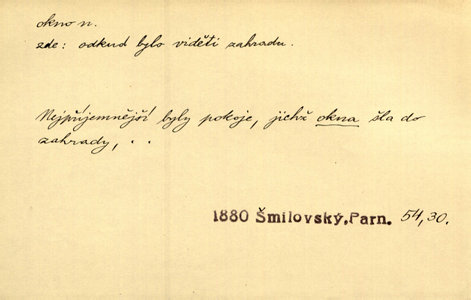 okno n.
zde: odkud bylo viděti zahradu.
Nejpříjemnější byly pokoje, jichž okna šla do
zahrady, . .
1880 Šmilovský, Parn. 54, 30.